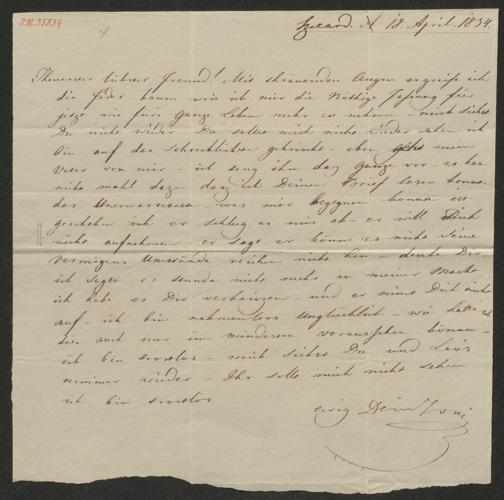 2N. 35834
18. April. 1834.
Theuerster lieber Freund! Mit thränenden Augen ergreife ich
die Feder kaum weis ich mir die Nöthige Fassung für
jetzt wie fürs ganze Leben mehr zu nehmen – mich siehst
Du nicht wieder Du sollst mich nicht wieder sehen ich
bin auf das Schrecklichste gekränkt – eben geht mein
Vater von mir – ich trug ihm das ganze vor – es kam
nicht mahl dazu das ich Deinen Brief lesen konnte
das Unerwarteste was mir begegnen konnte ist
geschehen er schlug es mir ab – er will Dich
nicht aufnehmen er sagt er könne es nicht seine
Vermögens Umstände reichen nicht hin – denke Dir
ich sagte es stünde nicht mehr in meiner Macht
ich habe es Dir verheissen – und er nimt Dich nicht
auf – ich bin nahmenlos unglücklich – wie hätte ich
dies auch nur im mindesten voraussehen können –
ich bin trostlos – mich siehst Du und
nimmer wieder – Ihr sollt mich nicht sehen
ich bin trostlos
ewig Dein